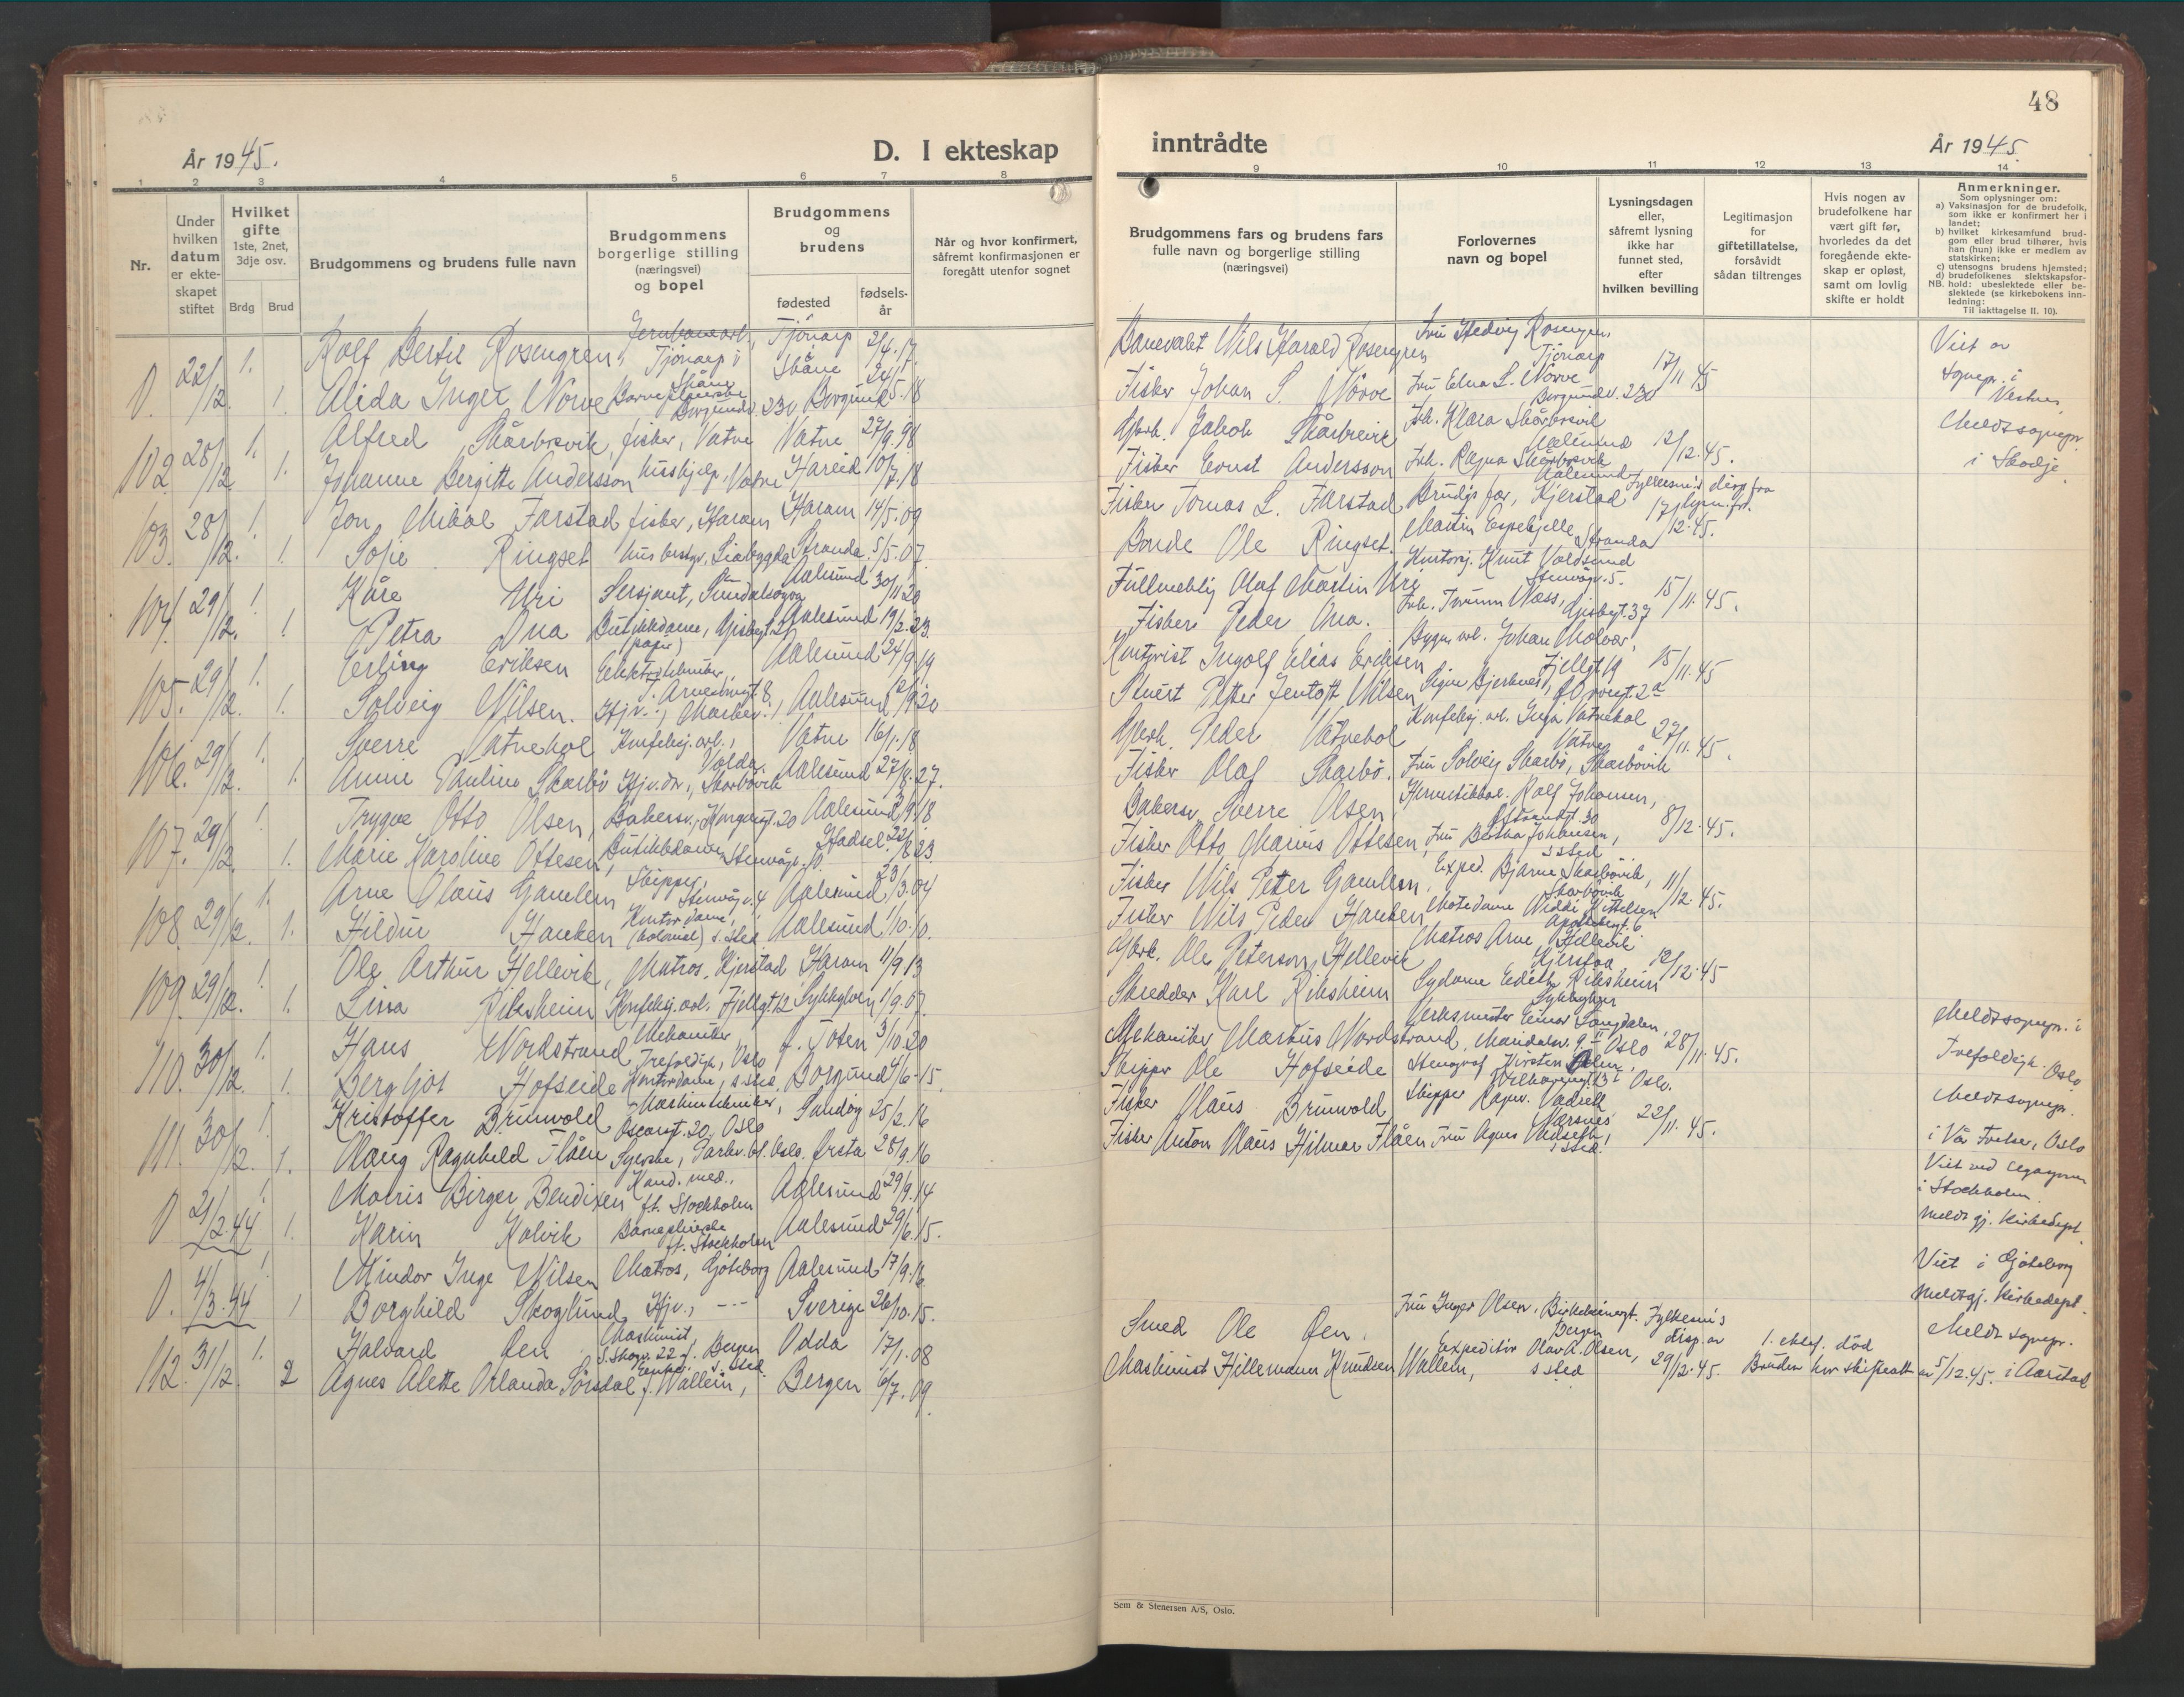 48
År 1945.
D. I ekteskap
inntrådte
År 1945.
1 2 3 4 5 6 7 8
9 10 11 12 13 14
Nr.
Under hvilken datum er ekteskapet stiftet
Hvilket gifte 1ste, 2net, 3dje osv.
Brdg Brud
Brudgommens og brudens fulle navn
Brudgommens borgerlige stilling (næringsvei) og bopel
Brudgommens og brudens
fødested
fødselsår
Når og hvor konfirmert, såfremt konfirmasjonen er foregått utenfor sognet
Brudgommens fars og brudens fars fulle navn og borgerlige stilling (næringsvei)
Forlovernes navn og bopel
Lysningsdagen eller, såfremt lysning ikke har funnet sted, efter hvilken bevilling
Legitimasjon for giftetillatelse, forsåvidt sådan tiltrenges
Hvis nogen av brudefolkene har vært gift før, hvorledes da det foregående ekteskap er opløst, samt om lovlig skifte er holdt
Anmerkninger.
Som oplysninger om:
a) Vaksinasjon for de brudefolk, som ikke er konfirmert her i landet;
b) hvilket kirkesamfund brudgom eller brud tilhører, hvis han (hun) ikke er medlem av statskirken;
c) utensogns brudens hjemsted;
d) brudefolkenes slektskapsforhold: ubeslektede eller beslektede (se kirkebokens innledning:
NB.
Til iakttagelse II. 10).
0. 22/12. 1. Rolf Bertil Rosengren, Jernbanearb., Tjörnarp i Skåne Tjörnarp Skåne 2/4.17. Banevakt Nils Harald Rosengren Fru Hedvig Rosengren, Tjörnarp 17/11 45 Viet av sognepr. i Vestnes
1. Alida Inger Nørve Barnepleierske Borgundv. 230 Borgund 24/5.18 Fisker Johan S. Nørve Fru Edna L. Nørve Borgundv. 230
102 28/12. 1. Alfred Skårbrevik, fisker, Vatne Vatne 27/9.98 Gbrk. Jakob Skårbrevik Frk. Klara Skårbrevik Aalesund 12/12.45. Meldt sognepr. i Skodje
1. Johanne Bergitte Andersson hushjelp, Vatne Hareid 10/7.18 Fisker Ernst Andersson Frk. Ragna Skårbrevik Aalesund
103. 28/12. 1. Jon Mikal Farstad fisker, Haram Haram 14/5.09 Fisker Tomas L. Farstad Brudgs far, Kjerstad Fylkesm's disp fra lysn. frl. 17/12.45.
1. Sofie Ringset husbestyr., Liabygda Stranda 5/5.07. Bonde Ole Ringset. Martin Espehjelle Stranda
104. 29/12. 1. Kåre Uri Sersjant, Sundalsøra Aalesund 30/11 20 Fullmektig Olaf Martin Ure Kontorsj. Knut Voldsund Stenvågv. 5. 15/11.45.
1. Petra Ona Butikkdame, (papir) Aalesund 19/2.23. Fisker Peder Ona. Frk. Torunn Næss,
105. 29/12. 1. Erling Eriksen Elektrotekniker, Aalesund 24/9.19. Ingolf Elias Eriksen Bygn. arb. Johan Molvær, Fjellgt 19 15/11.45
1. Solveig Nilsen. Hjv., Aalesund 12/9 20 Stuert Petter Jentoft Nilsen Signe Bjerknes,
106. 29/12. 1. Sverre Vatnehol Konfeksj. arb., Volda. Vatne 16/1.18 Gbrk. Peder Vatnehol Konfeksj. arb. Inga Vatnehol Vatne 27/11.45.
1. Annie Pauline Skarbø Hjv. dr., Skarbøvik Aalesund 27/8.27. Fisker Olaf Skarbø. Fru Solveig Skarbø, Skarbøvik
107. 29/12. 1. Trygve Otto Olsen, Bakersv., Kongensgt. 20 Aalesund 3/9.18 Bakersv. Sverre Olsen Hermetikkarb. Rolf Johansen, 8/12.45.
1. Marie Karoline Ottesen, Butikkdame, Stenvågv. 10. Hadsel. 22/8 23. Fisker Otto Marius Ottesen, Fru Bertha Johansen, s sted
108. 29/12. 1. Arne Olaus Gamlem Skipper, Stenvågv. 4 Aalesund 23/3.04 Fisker Nils Petter Gamlem, Exped. Bjarne Skarbøvik, Skarbøvik 11/12.45.
1. Hildur Hauken Kontordame, (kolonial) s. sted Aalesund 1/10.10. Fisker Nils Peder Hauken Motedame Widdi Kittelsen Apotekergt. 6
109. 29/12. 1. Ole Arthur Hellevik, Matros, Kjerstad Haram 11/9 13 Gbrk. Ole Peterson Hellevik Matros Arne Hellevik Kjerstad 12/12.45
1. Lissa Riksheim Konfeksj. arb. Fjellgt. 12 Sykkylven 1/9.07. Skredder Karl Riksheim Sydame Edith Riksheim Sykkylven
110. 30/12. 1. Hans Nordstrand Mekaniker, Trefoldigh., Oslo Ø. Toten 3/10.20 Mekaniker Markus Nordstrand, Verksmester Einar Langdalen, Maridalsv. 9. II Oslo 28/11.45. Meldt sognepr. i Trefoldigh. Oslo
1. Bergljot Hofseide Kontordame, s sted. Borgund 4/6.15. Skipper Ole Hofseide Stenograf Kirsten Oslo.
111. 30/12. 1. Kristoffer Brunvold Maskintekniker, Oscarsgt. 20, Oslo Sandøy 25/2.16 Fisker Olaus Brunvold, Skipper Ragnv. Vadseth Nørsnes 22/11.45. Meldt sognepr. i Vår Frelser, Oslo
1. Olaug Ragnhild Flåen Syerske, Oslo. Ørsta 28/9.16 Fisker Anton Olaus Hilmar Flåen Fru Agnes Vadseth, s sted.
0 21/2.44 1. Morris Birger Bendixen Kand. med., ft. Stockholm Aalesund 29/9.14 Viet ved i Stockholm. Meldt gj. Kirkedept.
1. Karin Kalvik Barnepleierske ft. Stockholm Aalesund 29/6.15.
0. 4/3.44 1. Mindor Inge Nilsen Matros, Gøteborg Aalesund 17/9.16. Viet i Gøteborg Meldt gj. Kirkedept.
1 Borghild Skoglund, Hjv., --- Sverige 26/10.15.
112. 31/12. 1. Halvard Øen Maskinist, Bergen Odda 17/1.08 Smed Ole Øen, Fru Inger Olsen, Bergen Fylkesm's disp. av 29/12.45. 1. ektef. død Bruden har skifteatt av 5/12.45. Meldt sognepr. i Aarstad
2 Agnes Alette Orlanda Sørsdal f. Wallem, s. sted. Bergen 6/7.09. Maskinist Hillemann Knudsen Wallem, Expeditør Olav A. Olsen, s sted
Sem & Stenersen A/S, Oslo.